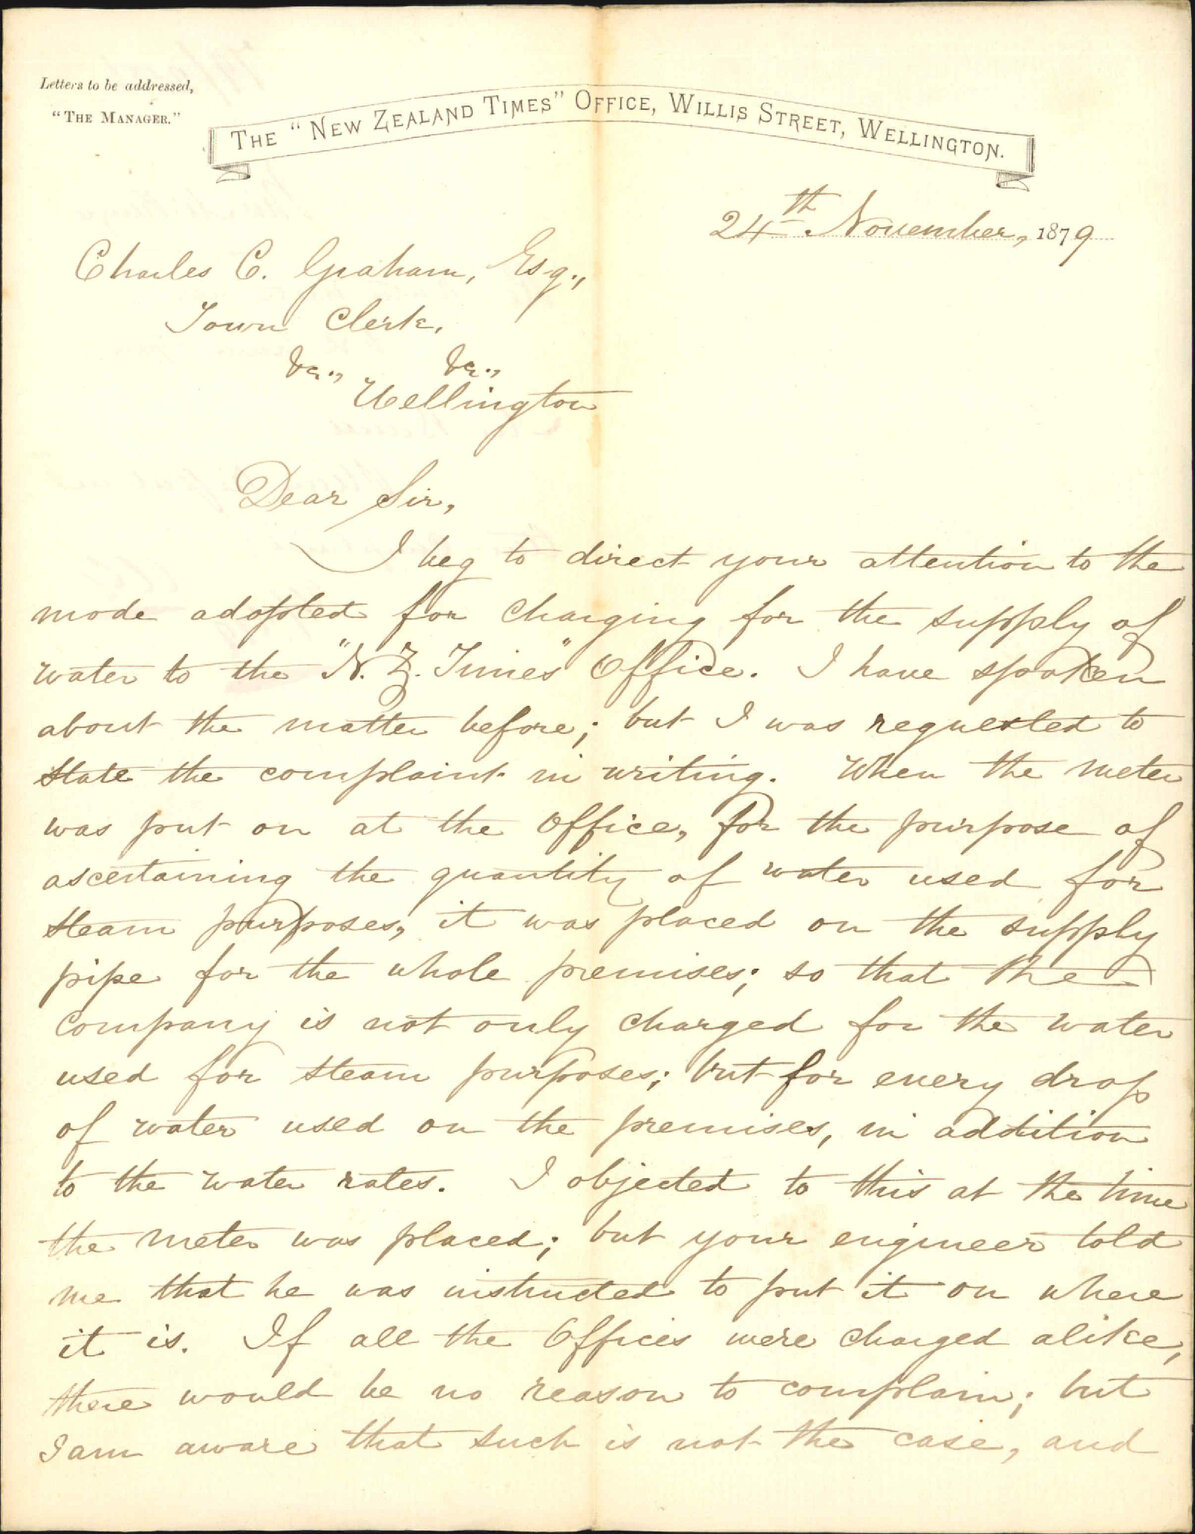 Letters to be addressed,
"THE MANAGER."
THE "NEW ZEALAND TIMES" OFFICE, WILLIS STREET, WELLINGTON.
24th November, 1879
Charles C. Graham, Esq.,
Town Clerk,
&c., &c.,
Wellington
Dear Sir,
I beg to direct your attention to the
mode adopted for charging for the supply of
water to the "N. Z. Times" Office. I have spoken
about the matter before; but I was requested to
state the complaint in writing. When the meter
was put on at the Office, for the purpose of
ascertaining the quantity of water used for
steam purposes, it was placed on the supply
pipe for the whole premises; so that the
company is not only charged for the water
used for steam purposes; but for every drop
of water used on the premises, in addition
to the water rates. I objected to this at the time
the meter was placed; but your engineer told
me that he was instructed to put it on where
it is. If all the Offices were charged alike,
there would be no reason to complain; but
I am aware that such is not the case, and